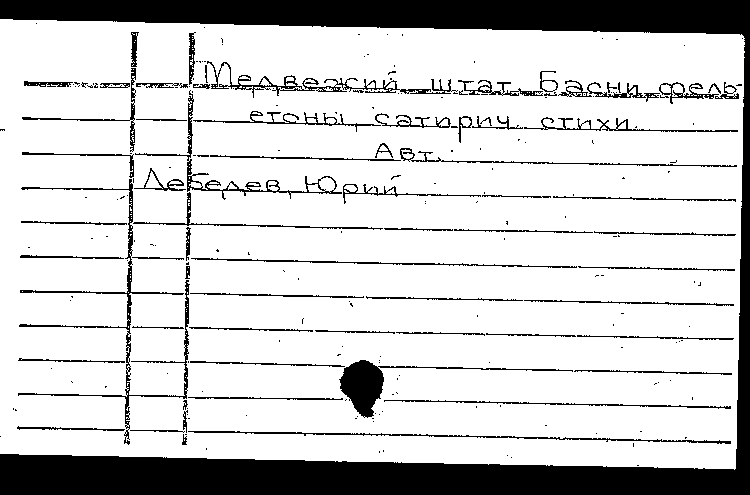 Медвежий штат. Басни, фель-
етоны, сатирич. стихи.
Авт.:
Лебедев, Юрий